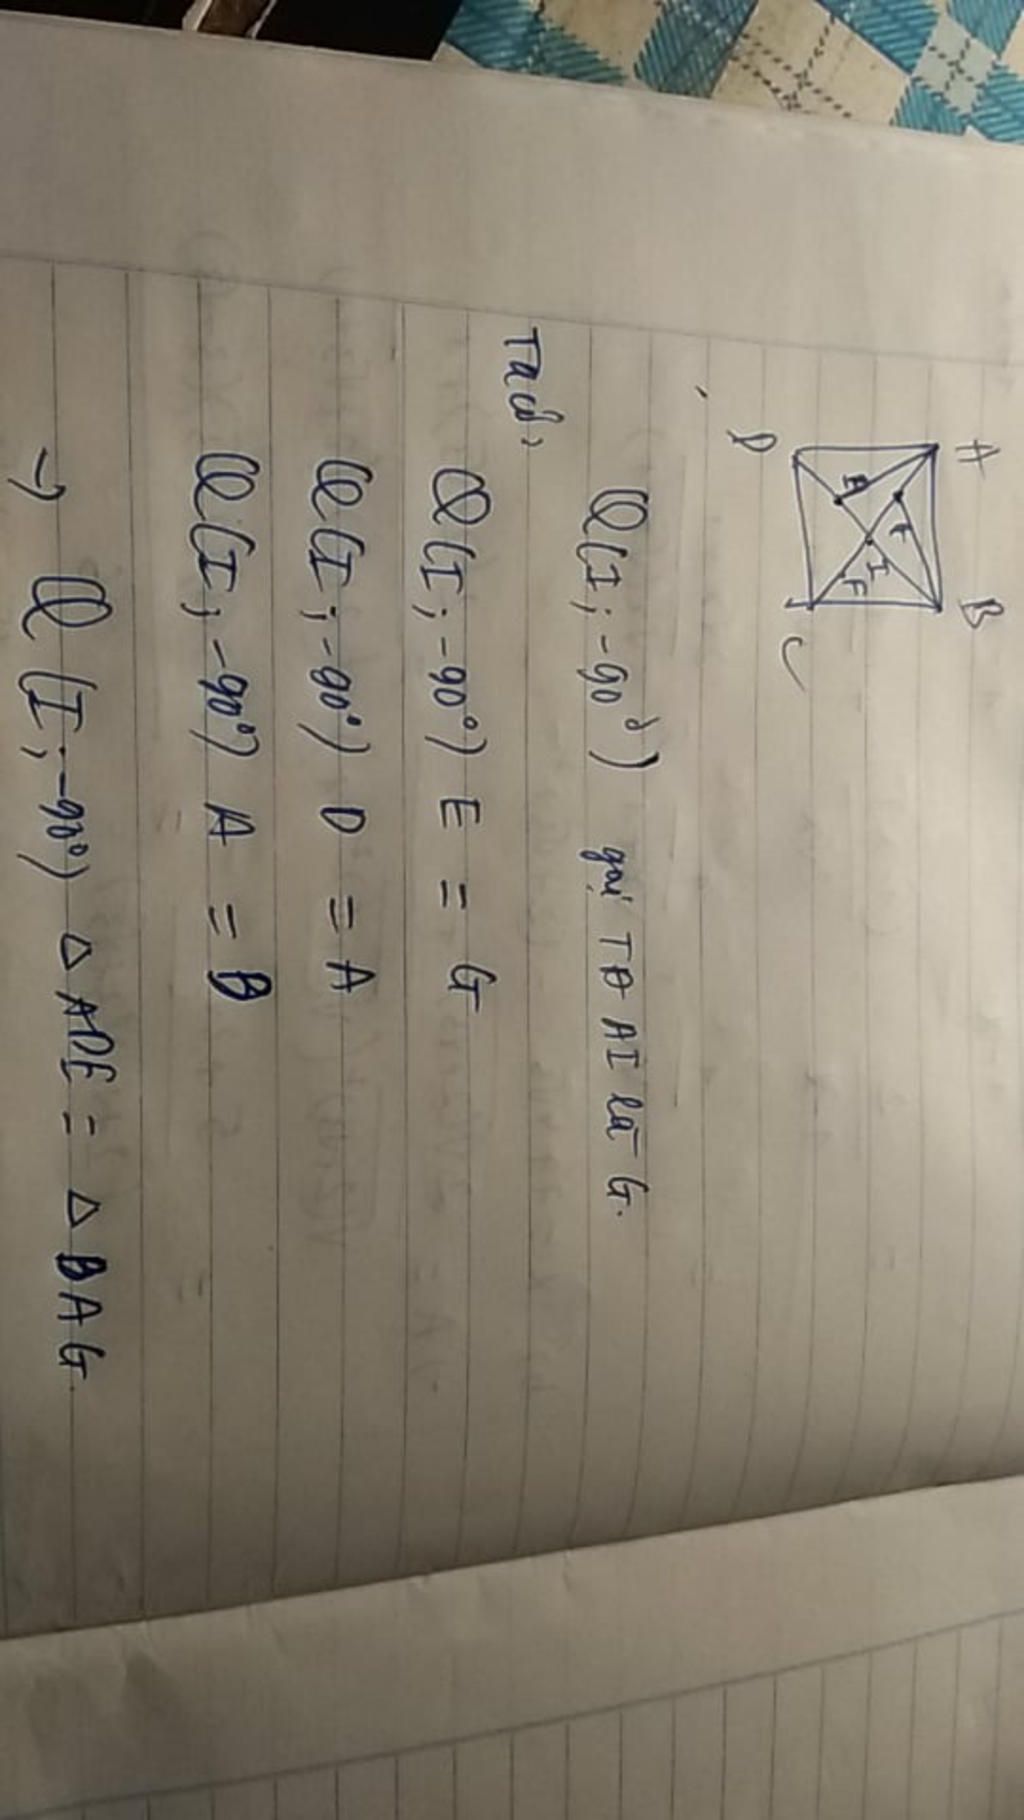 A B
E F
I
F
D C
Q(I; -90°) gọi TĐ AI là G.
Ta có:
Q(I; -90°) E = G
Q(I; -90°) D = A
Q(I; -90°) A = B
→ Q(I; -90°) △ ADE = △ BAG